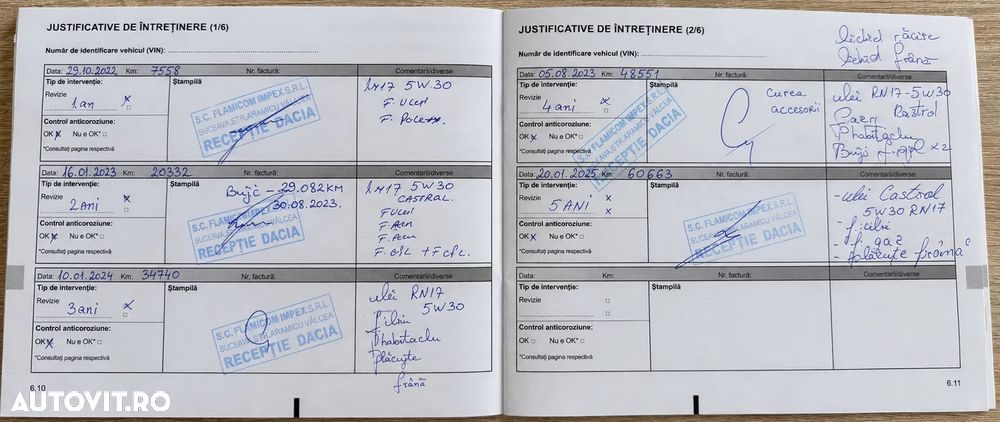 JUSTIFICATIVE DE ÎNTREȚINERE (1/6)
Număr de identificare vehicul (VIN):
Data: 29.10.2022 Km: 7558 Nr. factură: Comentarii/diverse
Tip de intervenție: Ștampilă
Revizie
1an
Control anticoroziune:
OK Nu e OK*
*Consultați pagina respectivă
S.C. FLAMICOM IMPEX S.R.L.
SUCEAVA,STR.ARAMICU VÂLCEA
RECEPȚIE DACIA
5W30
F. Ulei
Data: 16.01.2023 Km: 20332 Nr. factură: Comentarii/diverse
Tip de intervenție: Ștampilă
Revizie
2ani
Control anticoroziune:
OK Nu e OK*
*Consultați pagina respectivă
29.082KM
30.08.2023.
S.C. FLAMICOM IMPEX S.R.L.
SUCEAVA,STR.ARAMICU VÂLCEA
RECEPȚIE DACIA
5W30
CASTRAL.
F Ulei
Data: 10.01.2024 Km: 34740 Nr. factură: Comentarii/diverse
Tip de intervenție: Ștampilă
Revizie
3ani
Control anticoroziune:
OK Nu e OK*
*Consultați pagina respectivă
S.C. FLAMICOM IMPEX S.R.L.
SUCEAVA,STR.ARAMICU VÂLCEA
RECEPȚIE DACIA
ulei RN17
5W30
phabitaclu
plăcuțe
frână
6.10
JUSTIFICATIVE DE ÎNTREȚINERE (2/6)
Număr de identificare vehicul (VIN):
lichid răcire
lichid frână
Data: 05.08.2023 Km: 48551 Nr. factură: Comentarii/diverse
Tip de intervenție: Ștampilă
Revizie
4ani
Control anticoroziune:
OK Nu e OK*
*Consultați pagina respectivă
S.C. FLAMICOM IMPEX S.R.L.
SUCEAVA,STR.ARAMICU VÂLCEA
RECEPȚIE DACIA
curea
accesorii
ulei RN17-5W30
phabitaclu
x2
Data: 20.01.2025 Km: 60663 Nr. factură: Comentarii/diverse
Tip de intervenție: Ștampilă
Revizie
5 ANI
Control anticoroziune:
OK Nu e OK*
*Consultați pagina respectivă
S.C. FLAMICOM IMPEX S.R.L.
SUCEAVA,STR.ARAMICU VÂLCEA
RECEPȚIE DACIA
- ulei Castrol
5W30 RN17
- plăcuțe frână
Data: Km: Nr. factură: Comentarii/diverse
Tip de intervenție: Ștampilă
Revizie
Control anticoroziune:
OK Nu e OK*
*Consultați pagina respectivă
6.11
AUTOVIT.RO